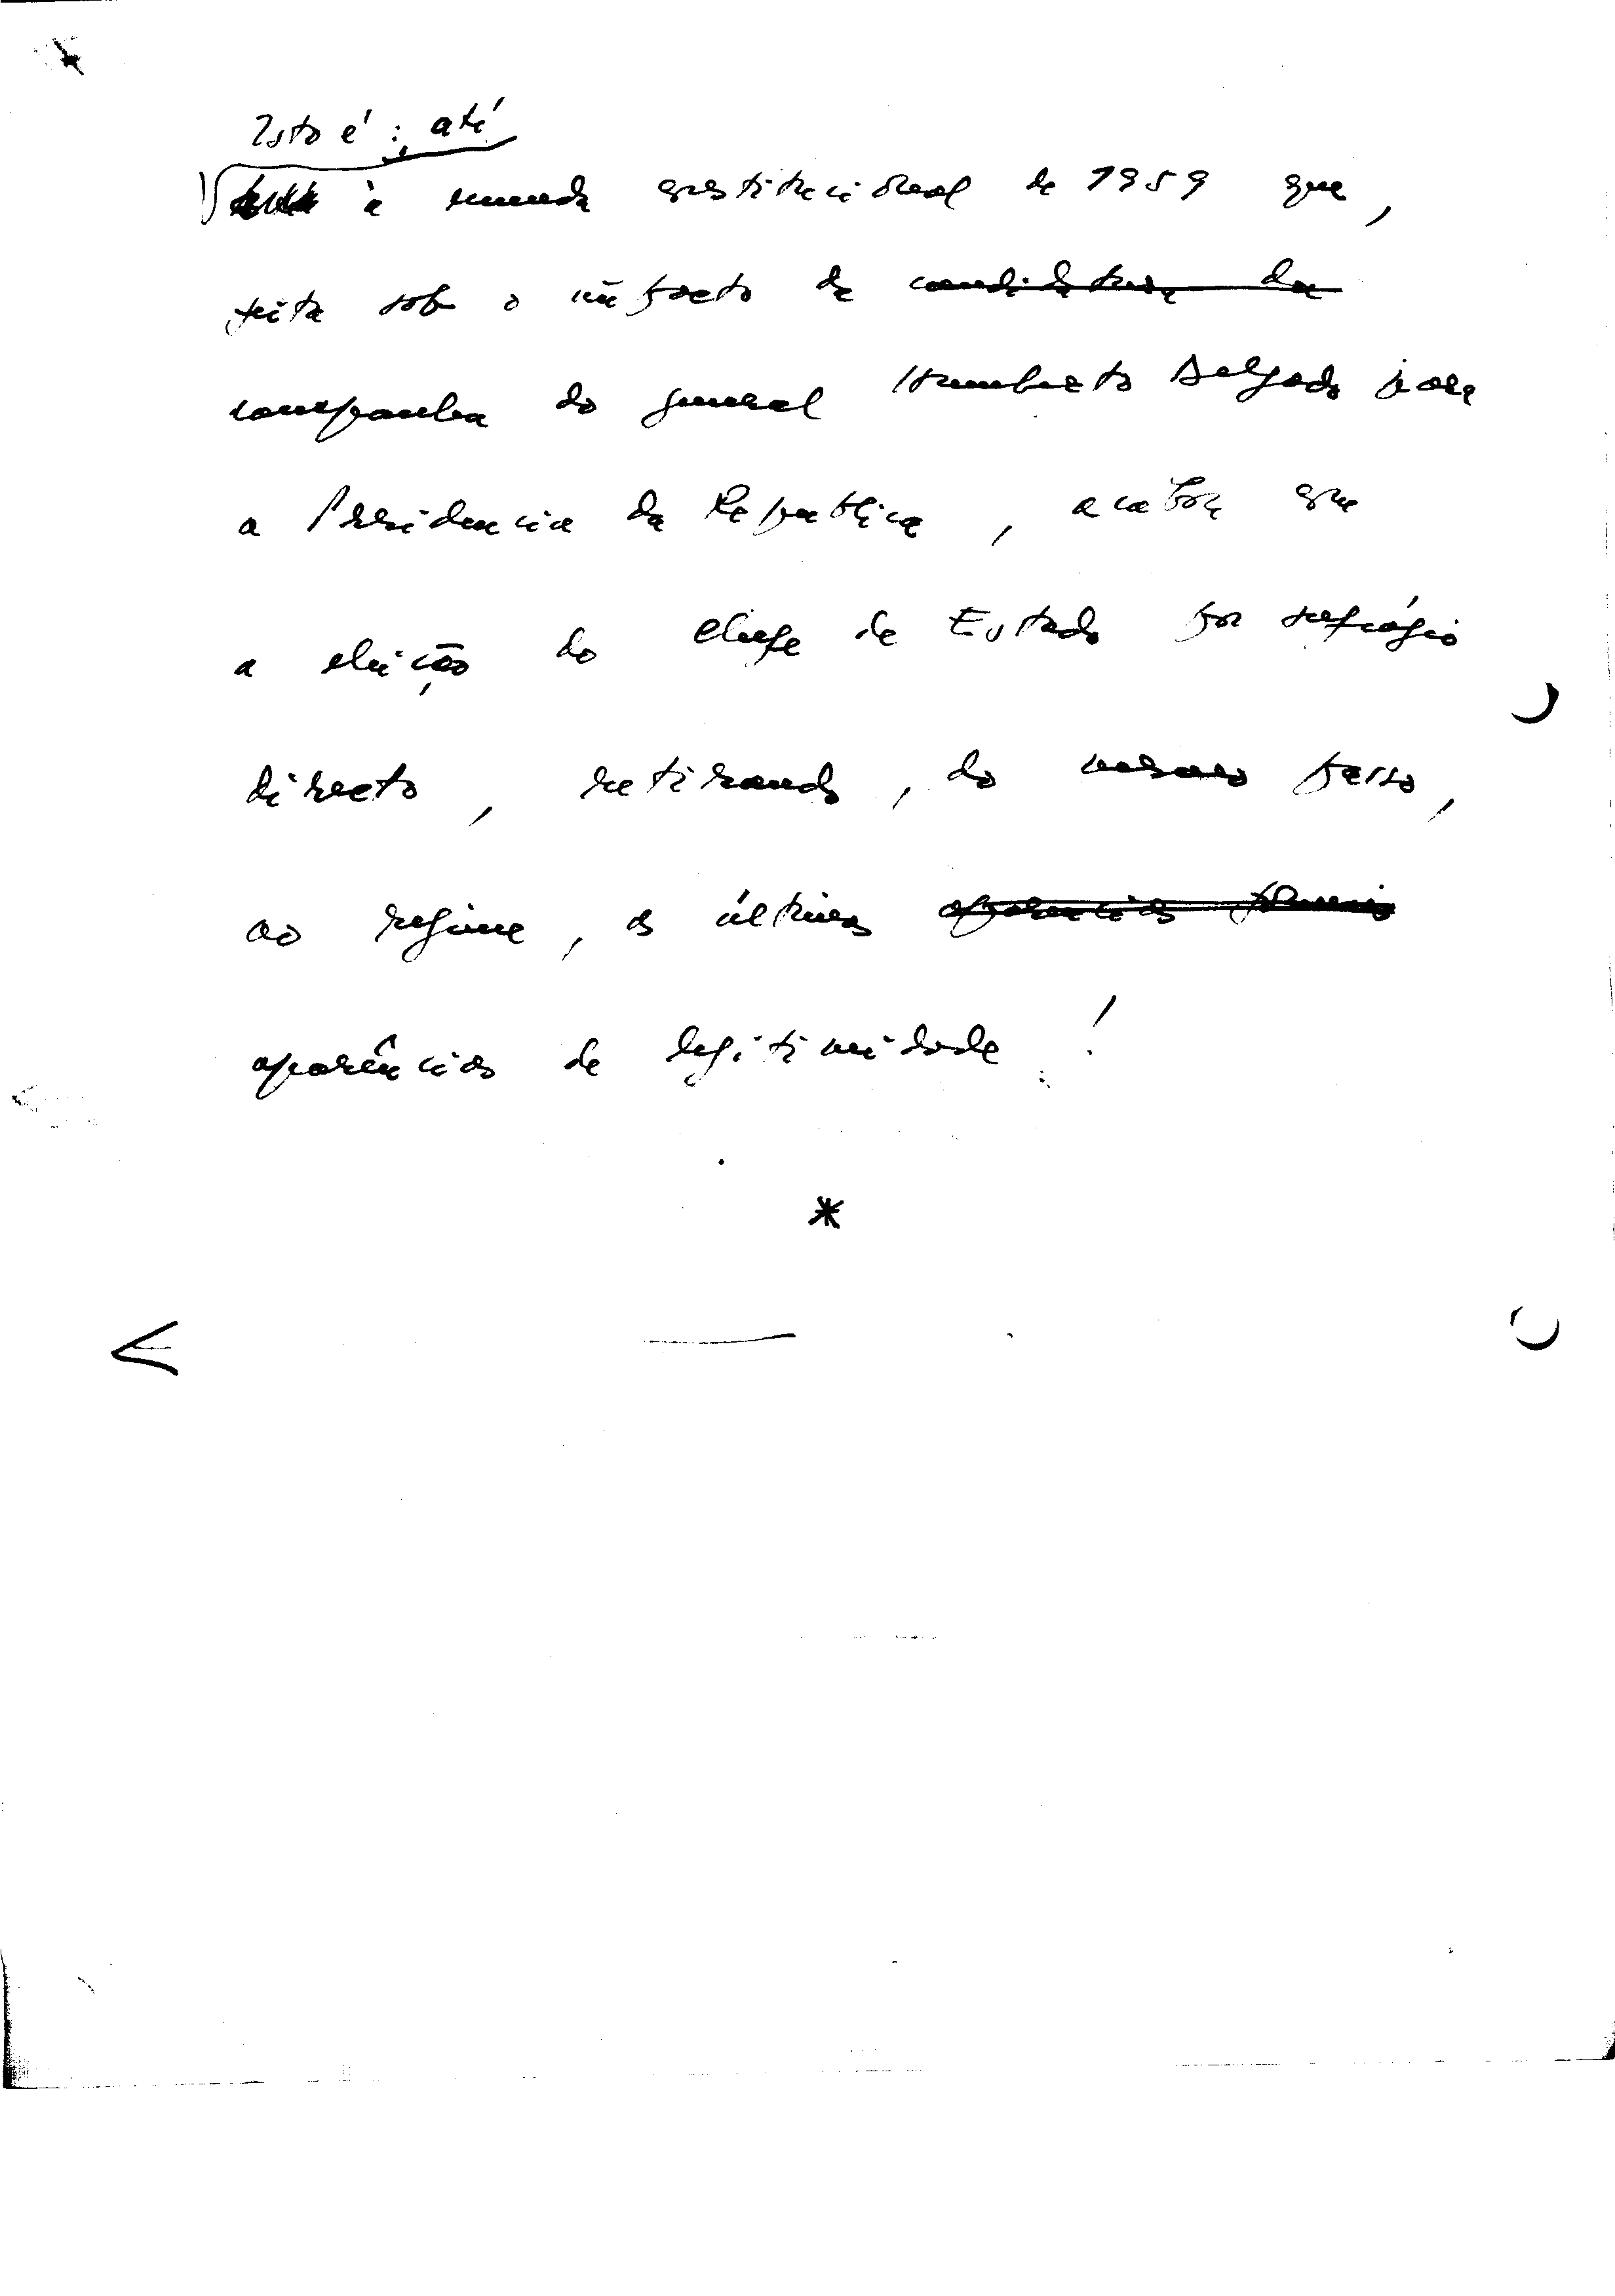 Isto é: até
à emenda constitucional de 1959 que,
feita sob o impacto da candidatura da
campanha do general Humberto Delgado para
a Presidencia da Republica, acabou que
a eleição do chefe de Estado por sufrágio
directo, retirando, do mesmo passo,
ao regime, as últimas aparencias formais
aparências de legitimidade!
*